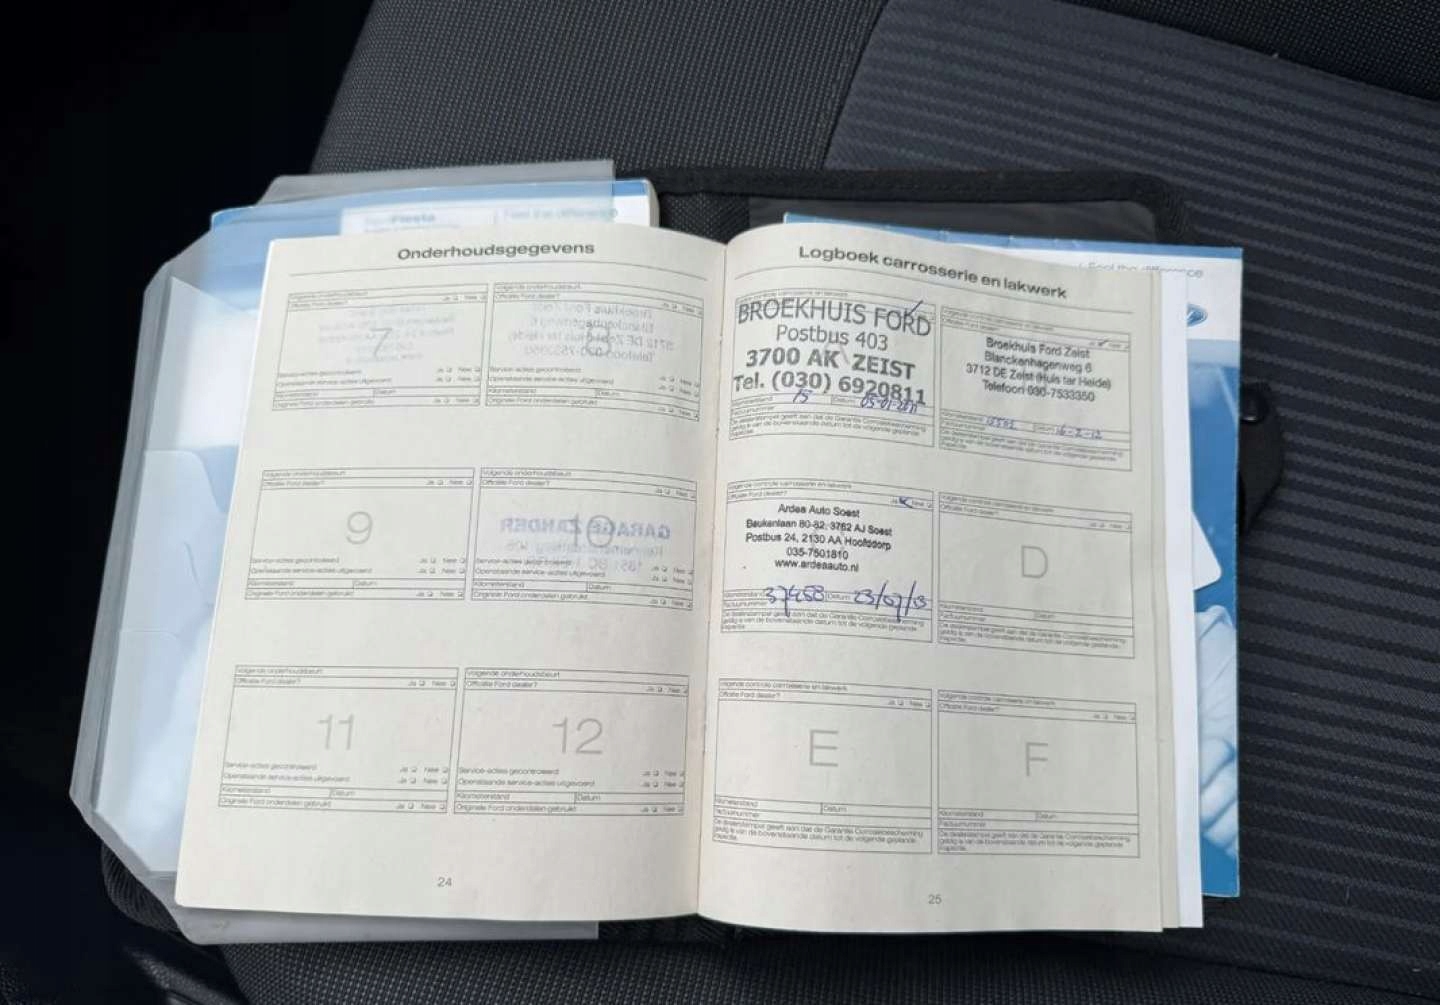 Fiesta
Feel the difference
Onderhoudsgegevens
Volgende onderhoudsbeurt
Officiële Ford dealer? Ja Nee
7
Service-acties gecontroleerd Ja Nee
Openstaande service-acties uitgevoerd Ja Nee
Kilometerstand Datum
Originele Ford onderdelen gebruikt Ja Nee
Volgende onderhoudsbeurt
Officiële Ford dealer? Ja Nee
Service-acties gecontroleerd Ja Nee
Openstaande service-acties uitgevoerd Ja Nee
Kilometerstand Datum
Originele Ford onderdelen gebruikt Ja Nee
Volgende onderhoudsbeurt
Officiële Ford dealer? Ja Nee
9
Service-acties gecontroleerd Ja Nee
Openstaande service-acties uitgevoerd Ja Nee
Kilometerstand Datum
Originele Ford onderdelen gebruikt Ja Nee
Volgende onderhoudsbeurt
Officiële Ford dealer? Ja Nee
10
GARAGE ZANDER
Service-acties gecontroleerd Ja Nee
Openstaande service-acties uitgevoerd Ja Nee
Kilometerstand Datum
Originele Ford onderdelen gebruikt Ja Nee
Volgende onderhoudsbeurt
Officiële Ford dealer? Ja Nee
11
Service-acties gecontroleerd Ja Nee
Openstaande service-acties uitgevoerd Ja Nee
Kilometerstand Datum
Originele Ford onderdelen gebruikt Ja Nee
Volgende onderhoudsbeurt
Officiële Ford dealer? Ja Nee
12
Service-acties gecontroleerd Ja Nee
Openstaande service-acties uitgevoerd Ja Nee
Kilometerstand Datum
Originele Ford onderdelen gebruikt Ja Nee
24
Feel the difference
Logboek carrosserie en lakwerk
BROEKHUIS FORD
Postbus 403
3700 AK ZEIST
Tel. (030) 6920811
Kilometerstand 15 Datum 05-01-2011
Factuurnummer
De dealerstempel geeft aan dat de Garantie Corrosiebescherming
geldig is van de bovenstaande datum tot de volgende geplande
inspectie.
Volgende controle carrosserie en lakwerk
Officiële Ford dealer? Ja Nee
Broekhuis Ford Zeist
Blanckenhagenweg 6
3712 DE Zeist (Huis ter Heide)
Telefoon 030-7533350
Kilometerstand Datum 16-2-12
Factuurnummer
De dealerstempel geeft aan dat de Garantie Corrosiebescherming
geldig is van de bovenstaande datum tot de volgende geplande
inspectie.
Volgende controle carrosserie en lakwerk
Officiële Ford dealer? Ja Nee
Ardea Auto Soest
Beukenlaan 80-82, 3762 AJ Soest
Postbus 24, 2130 AA Hoofddorp
035-7501810
www.ardeaauto.nl
Kilometerstand 37458 Datum 23/07/13
Factuurnummer
De dealerstempel geeft aan dat de Garantie Corrosiebescherming
geldig is van de bovenstaande datum tot de volgende geplande
inspectie.
Volgende controle carrosserie en lakwerk
Officiële Ford dealer? Ja Nee
D
Kilometerstand Datum
Factuurnummer
De dealerstempel geeft aan dat de Garantie Corrosiebescherming
geldig is van de bovenstaande datum tot de volgende geplande
inspectie.
Volgende controle carrosserie en lakwerk
Officiële Ford dealer? Ja Nee
E
Kilometerstand Datum
Factuurnummer
De dealerstempel geeft aan dat de Garantie Corrosiebescherming
geldig is van de bovenstaande datum tot de volgende geplande
inspectie.
Volgende controle carrosserie en lakwerk
Officiële Ford dealer? Ja Nee
F
Kilometerstand Datum
Factuurnummer
De dealerstempel geeft aan dat de Garantie Corrosiebescherming
geldig is van de bovenstaande datum tot de volgende geplande
inspectie.
25